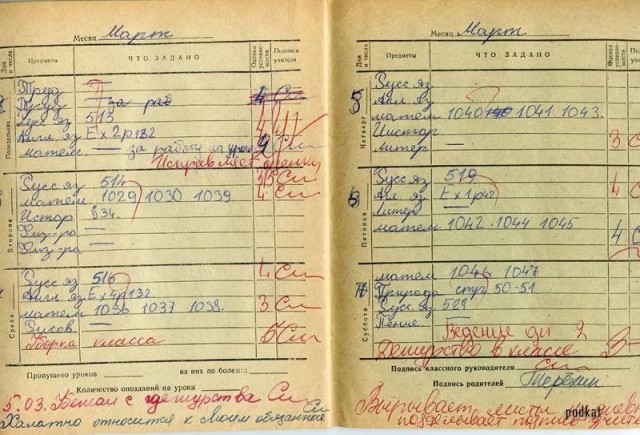 Месяц Март
Дни и числа Предметы ЧТО ЗАДАНО Оценка успеваемости Подпись учителя
Понедельник
Труд —
Труд — за раб 4
Русс яз 513 4
Англ яз Ex 2 p 132 4
матем — за работу на уроке
Исправляет оценки
Вторник
Русс яз 514 3/5
матем 1029 1030 1039 4
Истор §34
Физ-ра —
Физ-ра —
Среда
Русс яз 516 4
Англ яз Ex 4 p 132
матем 1036 1037 1038 3
Рисов. —
Уборка класса 5
Пропущено уроков из них по болезни
Количество опозданий на уроки
5.03. Бежал с дежурства
Халатно относится к своим
Месяц Март
Дни и числа Предметы ЧТО ЗАДАНО Оценка успеваемости
Четверг
5
Русс яз
Англ яз
матем 1040 1041 1043.
Истор —
Литер — 3
Пятница
6
Русс яз 519 4
Ан яз Ex 1 p 42
Литер —
матем 1042 1044 1045 4
Суббота
матем 1046 1047
Природа стр 50-51.
Русс яз 521
Пение —
Ведение дн 2
Дежурство в классе 3
Подпись классного руководителя
Подпись родителей Терёхин
Вырывает листы из
подделывает подпись
podkat